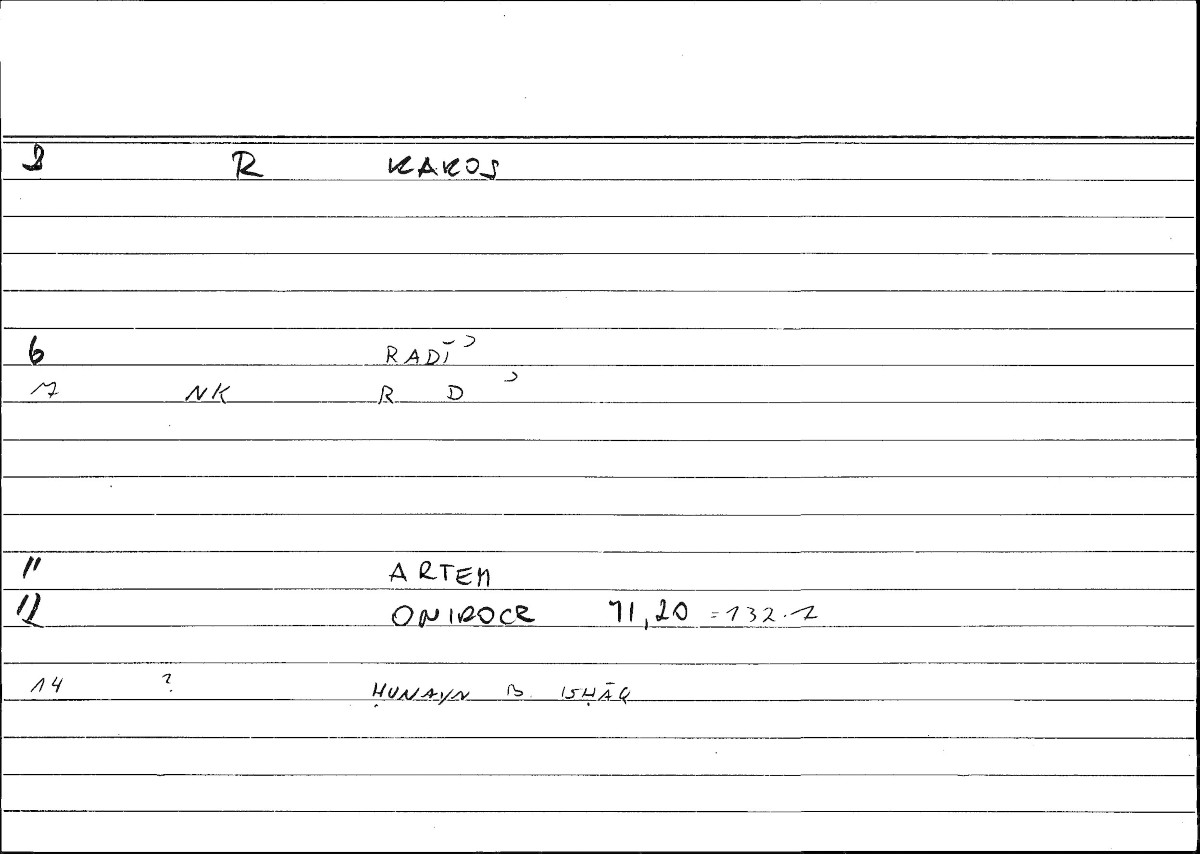 2 R KAKOS
6 RADĪʾ
7 NK R D ʾ
11 ARTEM
12 ONIROCR 71,20 =132.1
14 ? ḤUNAYN B. ISḤĀQ